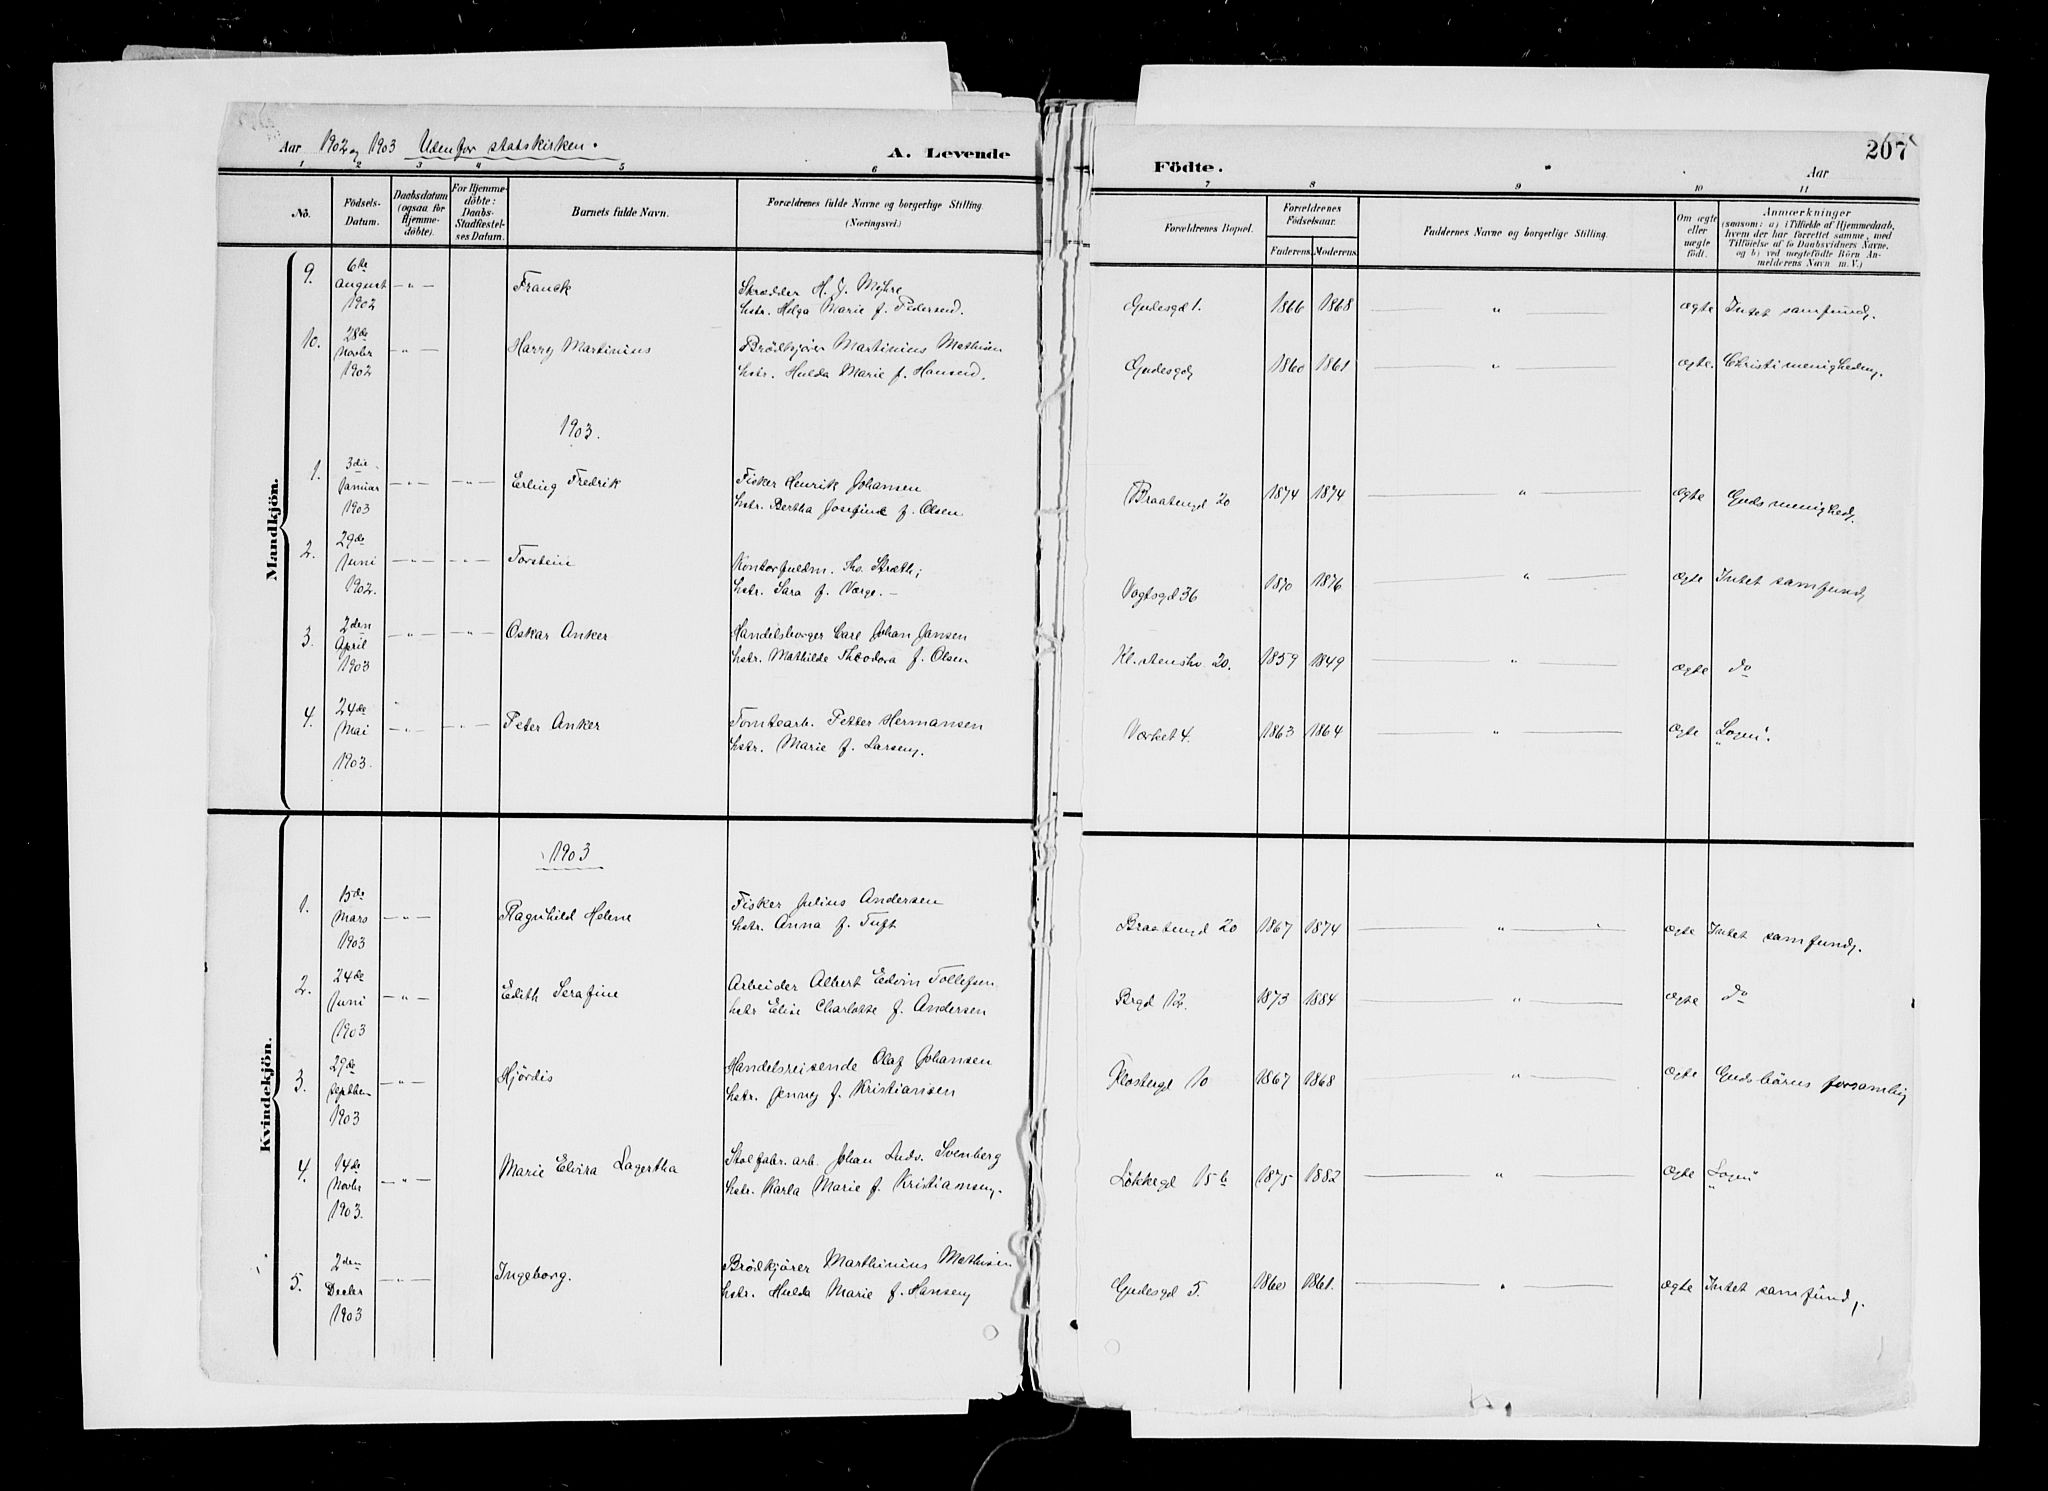 Aar 1902 og 1903 Udenfor statskirken.
A. Levende
1 2 3 4 5 6
No.
Fødsels-Datum.
Daabsdatum (ogsaa for Hjemme-døbte).
For Hjemme-døbte: Daabs-Stadfæstel-ses Datum.
Barnets fulde Navn.
Forældrenes fulde Navne og borgerlige Stilling
(Næringsvei.)
Mandkjön.
9. 6te August 1902 — " — Franck
Skrædder H. J. Myhre
hstr. Helga Marie f. Pedersen.
10. 28de Novbr 1902 — " — Harry Martinius
Brödkjører Martinius Mathisen
hstr. Hulda Marie f. Hansen.
1903.
1. 3die Januar 1903 — " — — " — Erling Fredrik
Fisker Henrik Johansen
hstr. Bertha Josefine f. Olsen
2. 29de Juni 1902. — " — — " — Torstein
Kontorfuldm. Ths. Stræth;
hstr. Sara f. Værge. —
3. 2den April 1903 — " — — " — Oskar Anker
Handelsborger Carl Johan Jansen
hstr. Mathilde Theodora f. Olsen
4. 24de Mai 1903. — " — — " — Peter Anker
Tomtearb. Petter Hermansen
hstr. Marie f. Larsen.
Kvindekjön.
1903
1. 15de Mars 1903 — " — Ragnhild Helene
Fisker Julius Andersen
hstr. Anna f. Tuft
2. 24de Juni 1903 — " — Edith Serafine
Arbeider Albert Edvin Tollefsen
hstr Elise Charlotte f. Andersen
3. 29de Septbr 1903 — " — Hjördis
Handelsreisende Olaf Johansen
hstr. Jenny f. Kristiansen
4. 14de Novbr 1903. — " — Marie Elvira Lagertha
Stolfabr. arb. Johan Ludv. Svenberg
hstr. Karla Marie f. Kristiansen.
5. 2den Decbr 1903 — " — Ingeborg.
Brödkjører Marthinius Mathisen
hstr. Hulda Marie f. Hansen
207
Födte.
Aar
7 8 9 10 11
Forældrenes Bopæl.
Forældrenes Fødselsaar.
Faderens. Moderens.
Faddernes Navne og borgerlige Stilling.
Om ægte eller uægte født.
Anmærkninger
(saasom: a) i Tilfælde af Hjemmedaab, hvem der har forrettet samme, med Tilføielse af to Daabsvidners Navne, og b) ved uægtefødte Børn Anmelderens Navn m. V.)
Gudesgd 1. 1866 1868 — " — ægte Intet samfund.
Gudesgd 1860 1861 — " — ægte. Christi menigheden.
Braatengd 20 1874 1874 — " — ægte Guds menighed.
Vogtsgd 36 1870 1876 — " — ægte Intet samfund
20. 1859 1849 — " — ægte do
Værket 4. 1863 1864 — " — ægte "Logen".
Braatengd 20 1867 1874 — " — ægte Intet samfund.
Brgd 12. 1873 1884 — " — ægte do
Klostergd 10 1867 1868 — " — ægte Guds börns forsamling
Løkkegd 15 b 1875 1882 — " — ægte "Logen"
Gudesgd 5. 1860 1861. — " — ægte Intet samfund.